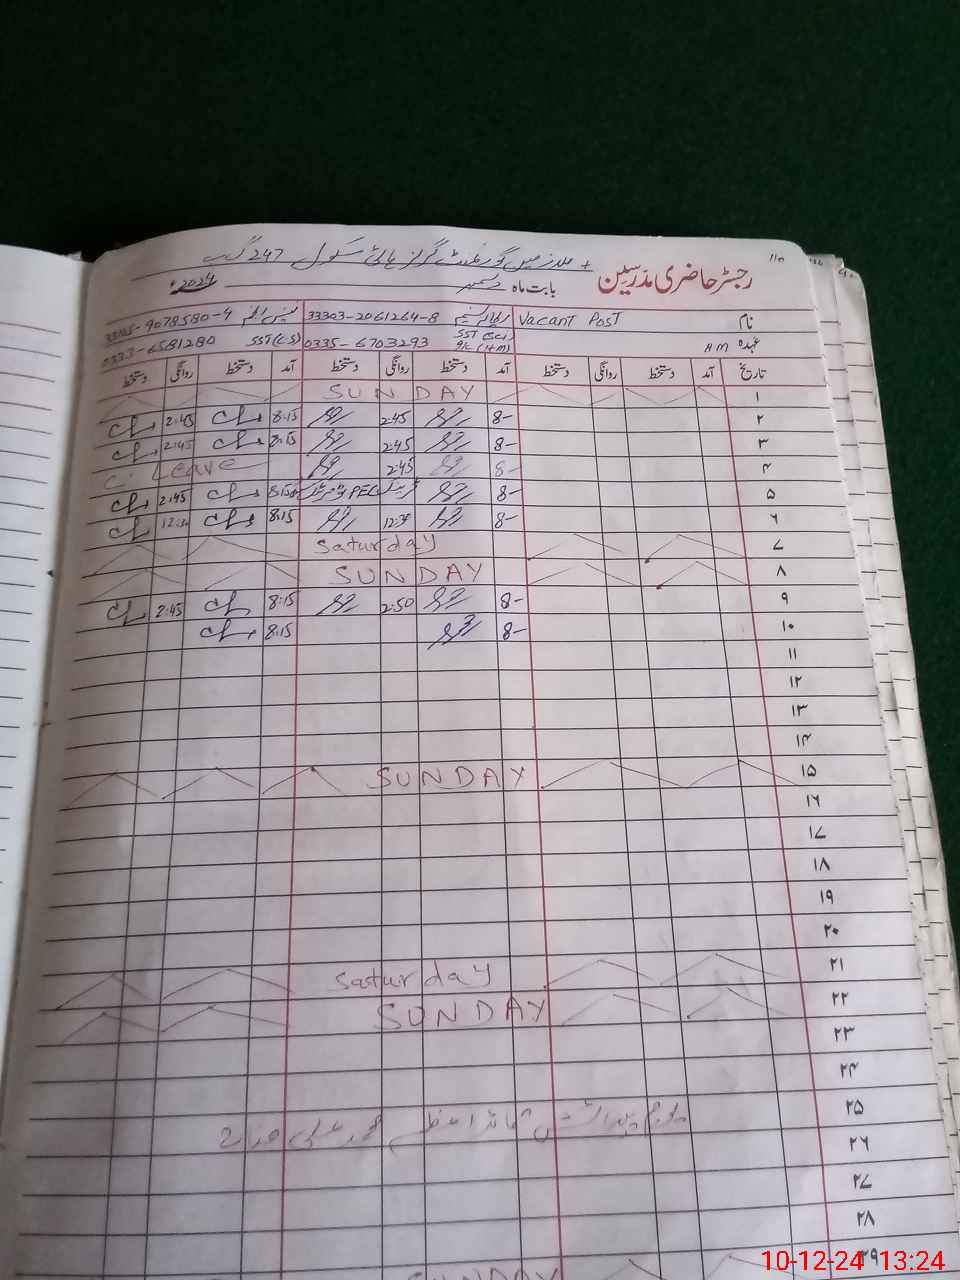 ملازمین گورنمنٹ گرلز ہائی سکول 247 گ ب
رجسٹر حاضری مدرسین
بابت ماہ دسمبر 2024ء
نام Vacant Post 33303-2061264-8 33105-9078580-4
عہدہ HM SST (Sci) I/C (HM) 0335-6703293 SST (CS) 0333-6581280
تاریخ آمد دستخط روانگی دستخط آمد دستخط روانگی دستخط آمد دستخط روانگی دستخط
۱ SUNDAY
۲ 8- 2:45 8:15 2:45
۳ 8- 2:45 8:15 2:45
۴ 8- 2:45 C. Leave
۵ 8- PEC 8:15 2:45
۶ 8- 12:30 8:15 12:30
۷ Saturday
۸ SUNDAY
۹ 8- 2:50 8:15 2:45
۱۰ 8- 8:15
۱۱
۱۲
۱۳
۱۴
۱۵ SUNDAY
۱۶
۱۷
۱۸
۱۹
۲۰
۲۱ Saturday
۲۲ SUNDAY
۲۳
۲۴
۲۵ یوم پیدائش قائداعظم محمد علی جناح
۲۶
۲۷
۲۸
۲۹ SUNDAY
10-12-24 13:24